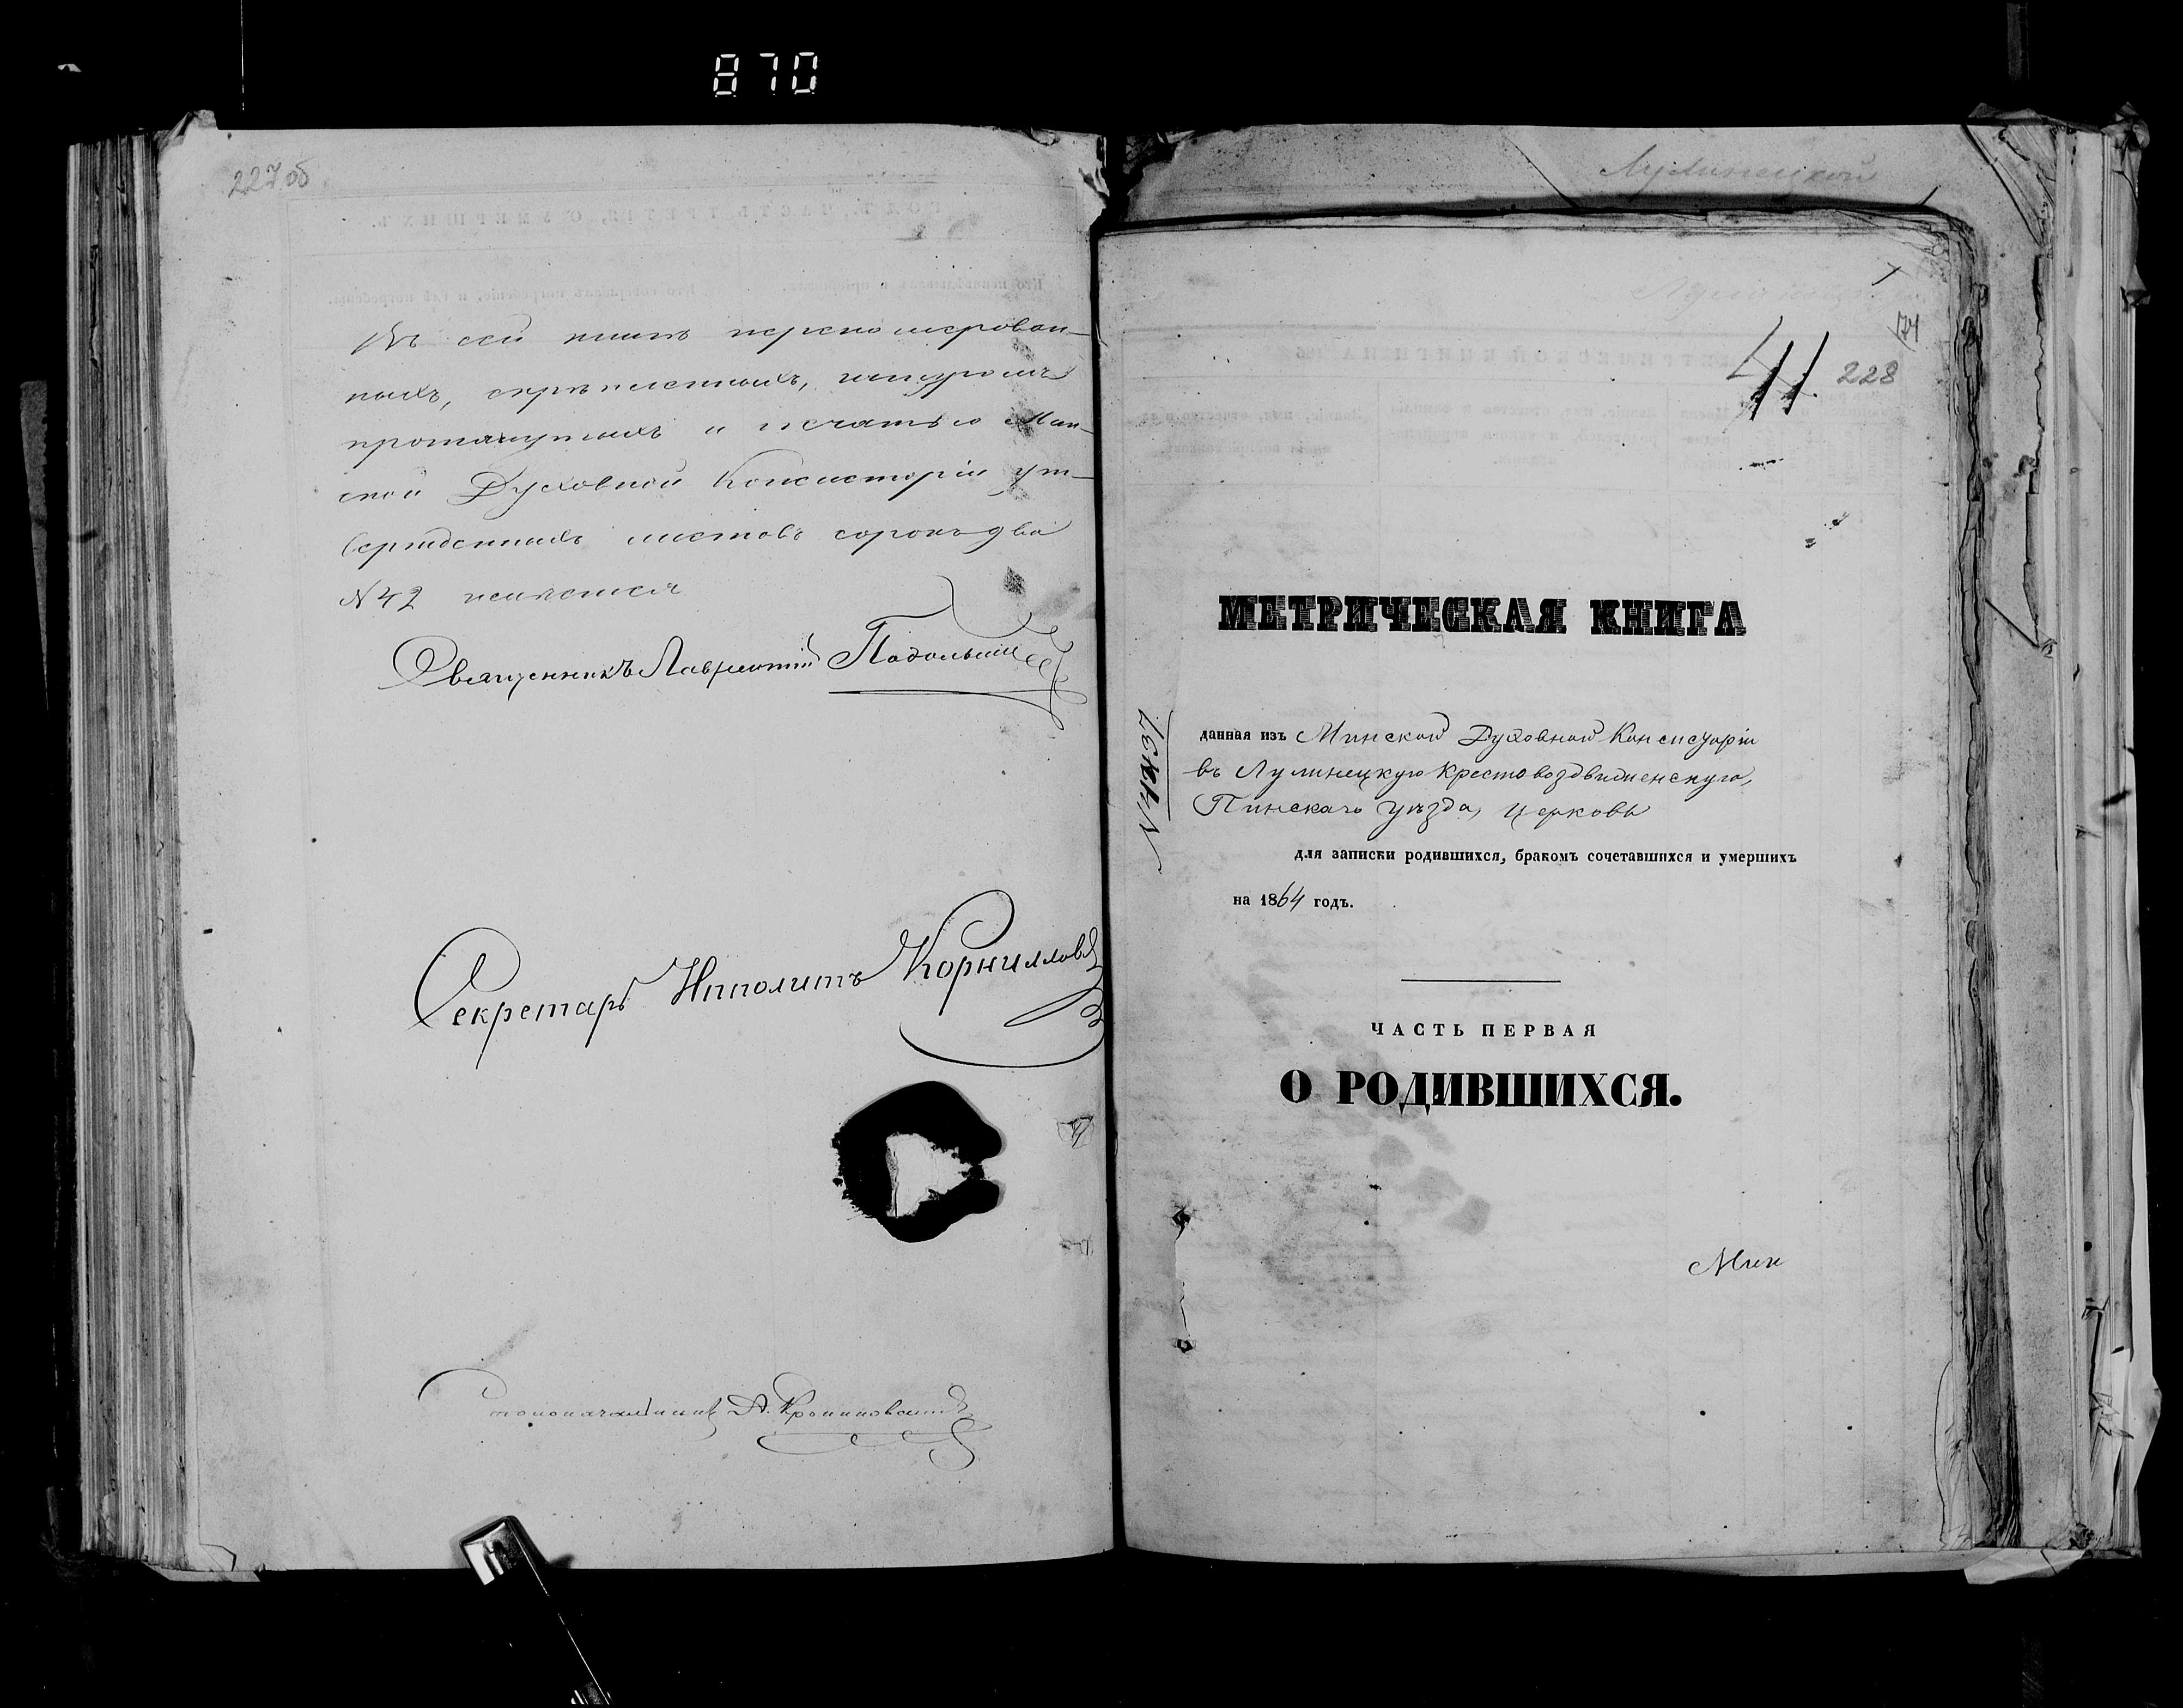 870
227 об
Въ сей книгѣ перенумерован-
ныхъ, скрѣпленныхъ, шнуромъ
протянутыхъ и печатью Мин-
ской Духовной Консисторіи ут-
вержденныхъ листовъ сорокъ два
№ 42 имѣется
Священникъ Лаврентій
Секретарь Ипполитъ Корниловъ
Столоначальникъ А.
Лулинецкой
41
228
МЕТРИЧЕСКАЯ КНИГА
данная изъ Минской Духовной Консисторіи
въ Лулинецкую Крестовоздвиженскую,
Пинскаго уѣзда, церковь
для записки родившихся, бракомъ сочетавшихся и умершихъ
на 1864 годъ.
ЧАСТЬ ПЕРВАЯ
О РОДИВШИХСЯ.
Мин